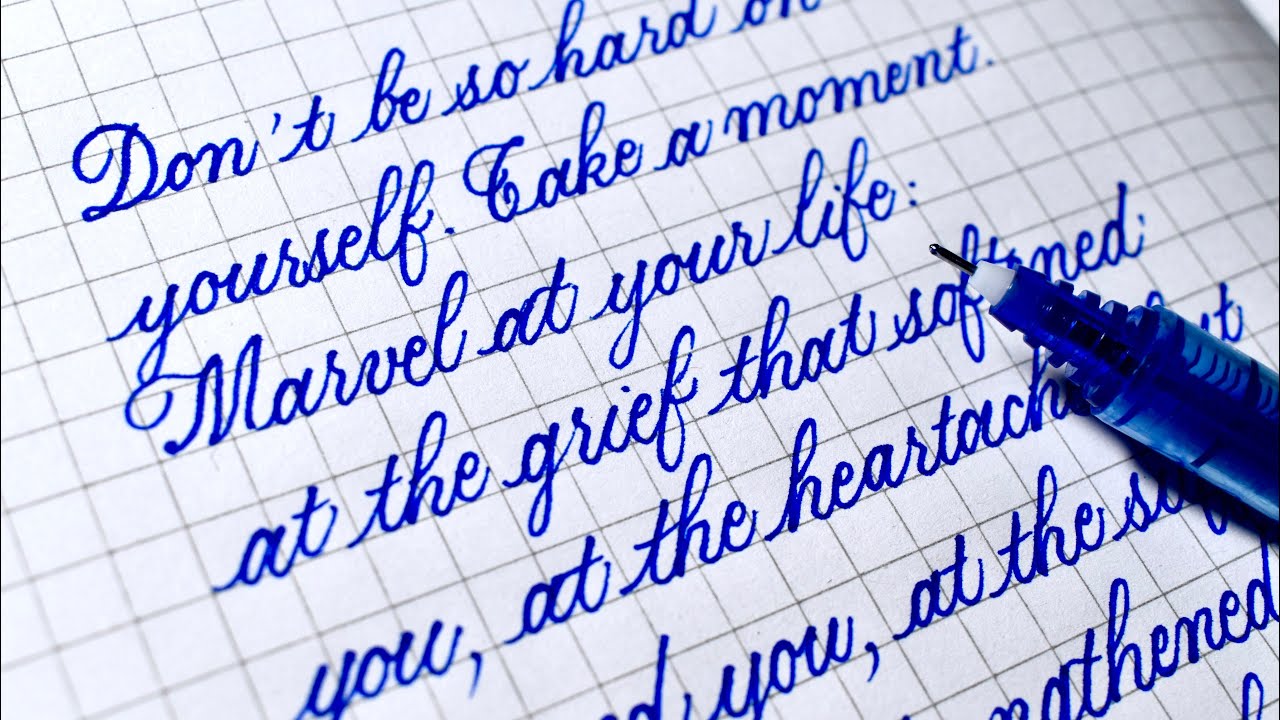 Don't be so hard on
yourself. Take a moment.
Marvel at your life:
at the grief that softened
you, at the heartache
you, at the